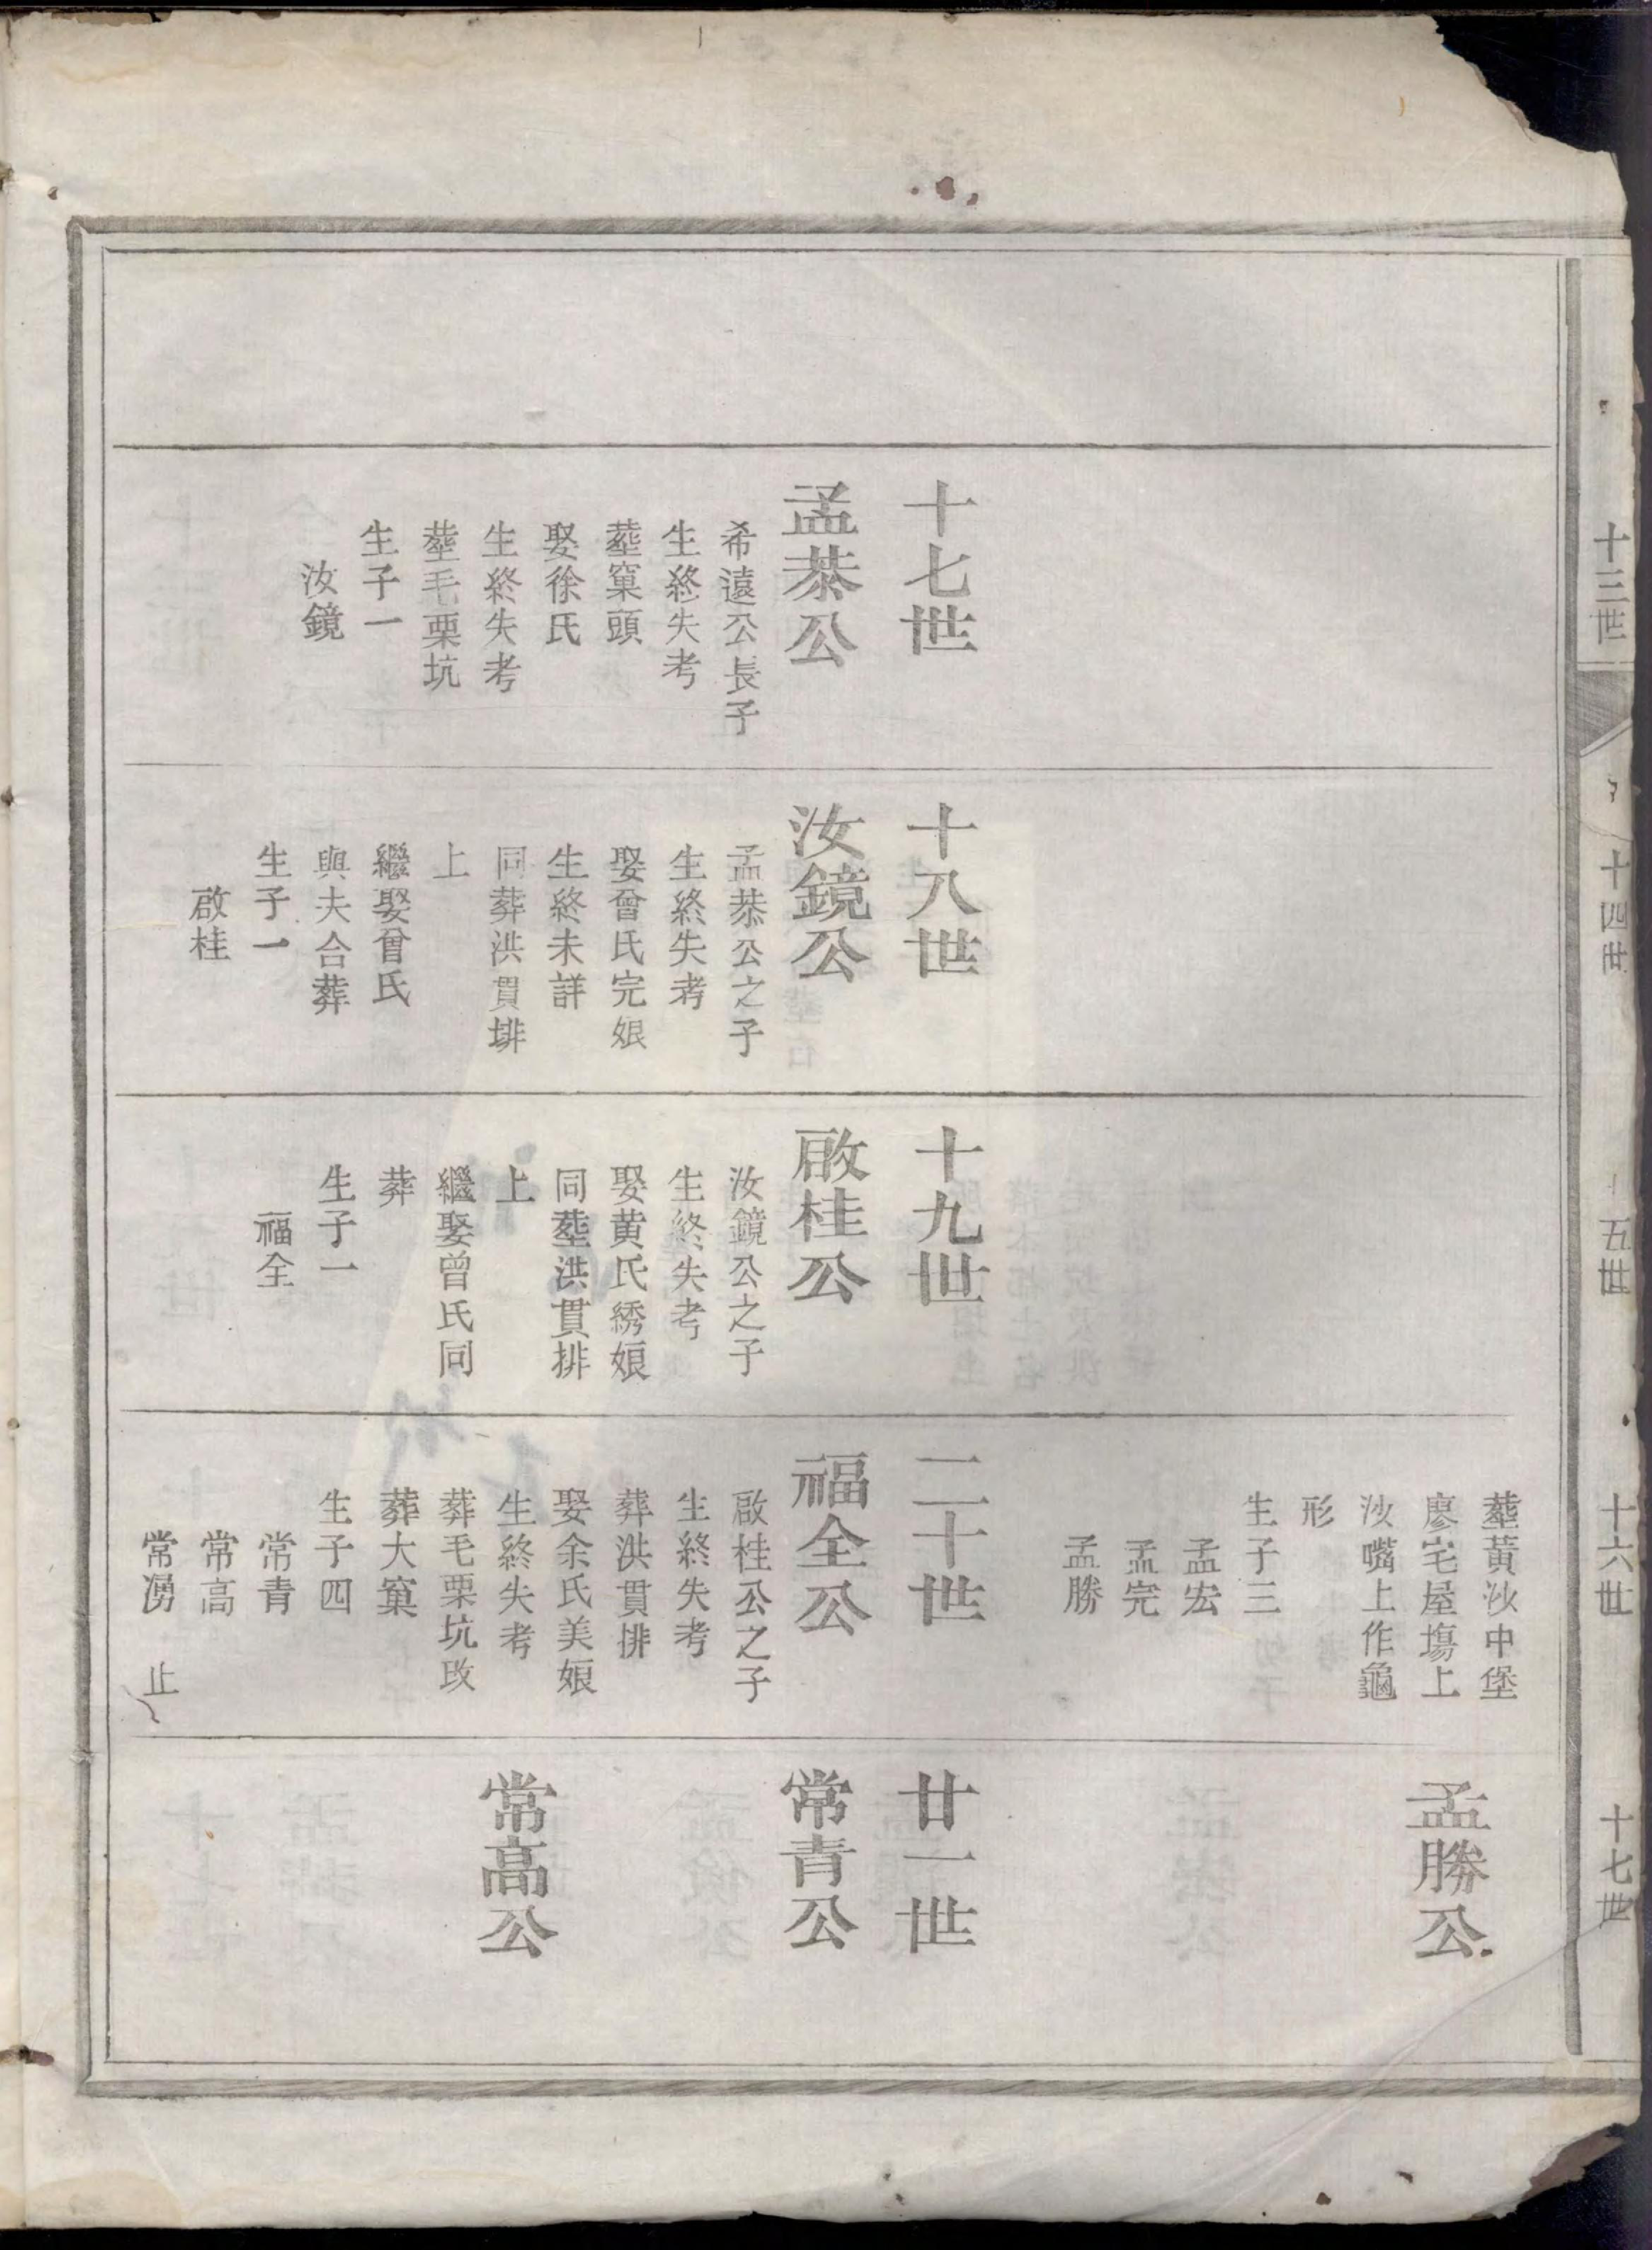 十三世
十四世
十五世
十六世
十七世
葬黃沙中堡
廖宅屋塲上
沙嘴上作龜
形
生子三
孟宏
孟完
孟勝
孟勝公
十七世
孟恭公
希遠公長子
生終失考
葬窠頭
娶徐氏
生終失考
葬毛栗坑
生子一
汝鏡
十八世
汝鏡公
孟恭公之子
生終失考
娶曾氏完娘
生終未詳
同葬洪貫排
上
繼娶曾氏
與夫合葬
生子一
啟桂
十九世
啟桂公
汝鏡公之子
生終失考
娶黄氏綉娘
同葬洪貫排
上
繼娶曾氏同
葬
生子一
福全
二十世
福全公
啟桂公之子
生終失考
葬洪貫排
娶余氏美娘
生終失考
葬毛栗坑改
葬大窠
生子四
常青
常高
常湧 止
廿一世
常青公
常高公